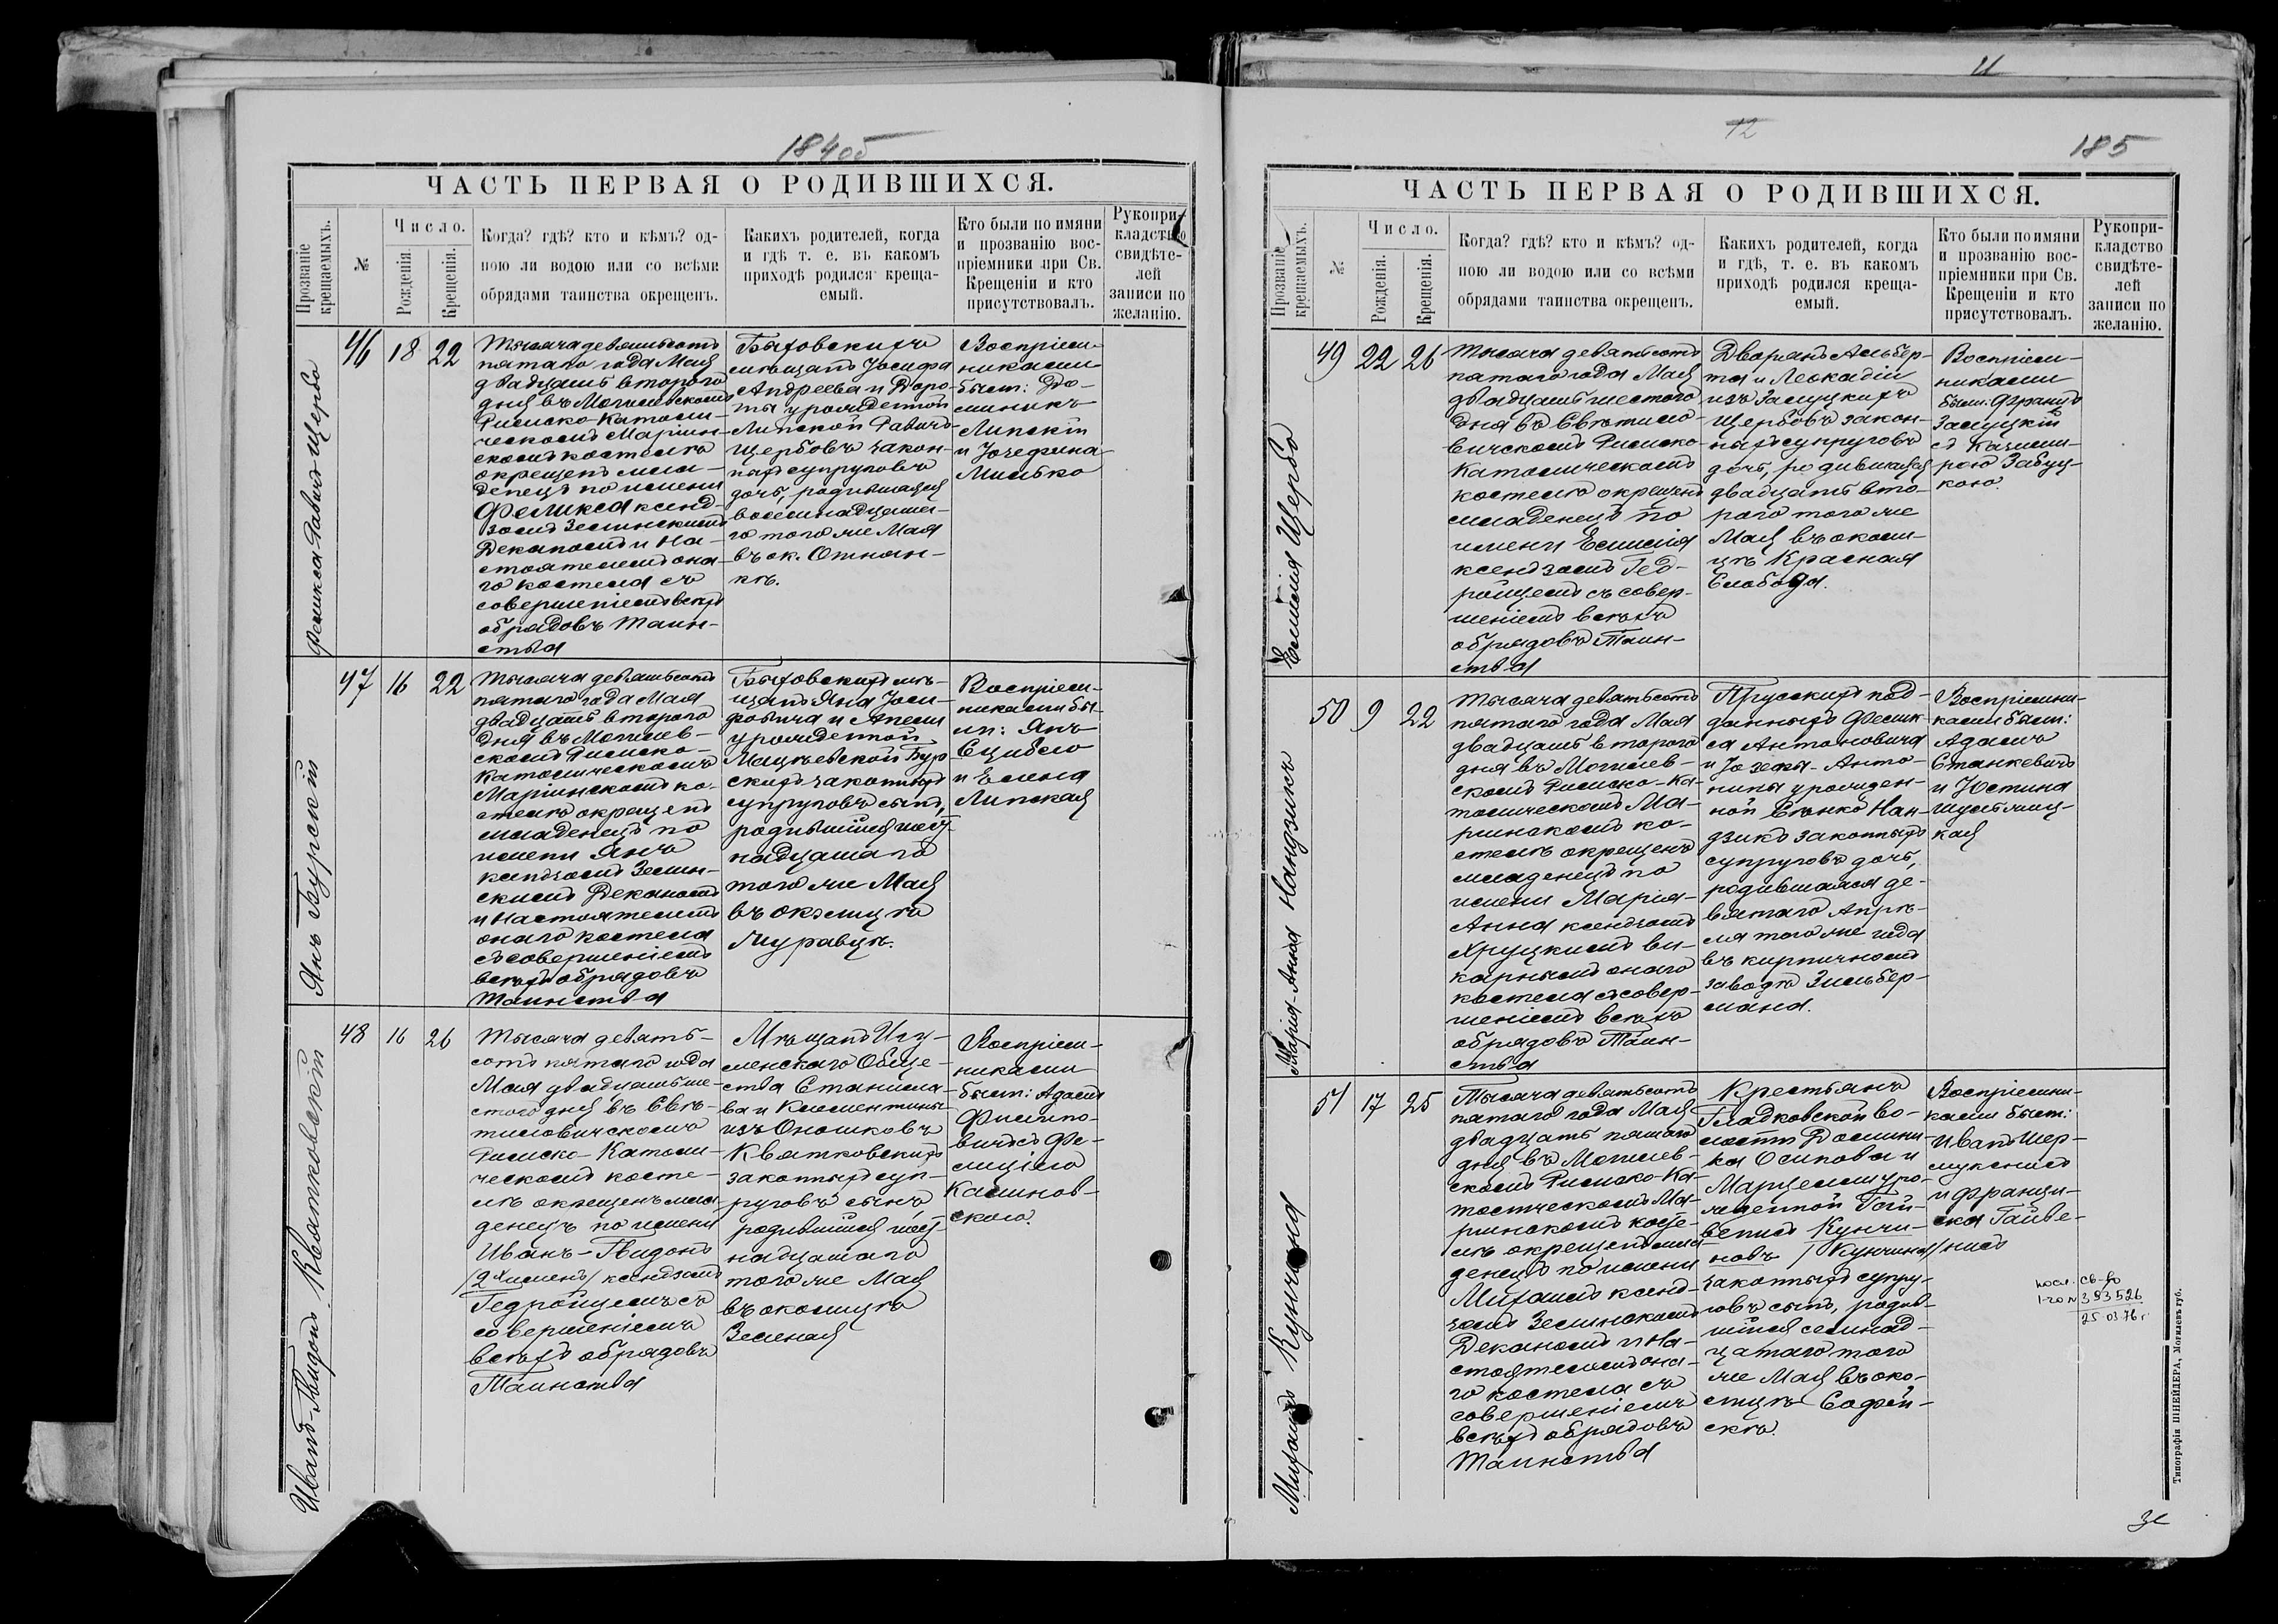 184об
ЧАСТЬ ПЕРВАЯ О РОДИВШИХСЯ.
Прозваніе крещаемыхъ.
№
Число.
Рожденія.
Крещенія.
Когда? гдѣ? кто и кѣмъ? од-
ною ли водою или со всѣми
обрядами таинства окрещенъ.
Какихъ родителей, когда
и гдѣ т. е. въ какомъ
приходѣ родился креща-
емый.
Кто были по имяни
и прозванію вос-
пріемники при Св.
Крещеніи и кто
присутствовалъ.
Рукопри-
кладство
свидѣте-
лей
записи по
желанію.
Фелікса Равичъ Щербо
46
18
22
Тысяча девятьсотъ
пятаго года Мая
двадцать второго
дня въ Могилевскомъ
Римско-Католи-
ческомъ Маріин-
скомъ костелѣ
окрещенъ мла-
денецъ по имени
Феликса ксенд-
зомъ Зелинскимъ
Деканомъ и На-
стоятелемъ она-
го костела съ
совершеніемъ всѣхъ
обрядовъ Таин-
ства
Быховскихъ
мѣщанъ Іосифа
Андреева и Доро-
ты урожденной
Липской Равичъ-
Щербовъ закон-
ныхъ супруговъ
дочь, родившаяся
восемнадцата-
го того же Мая
въ ок.
Воспріем-
никами
были: До-
миникъ
Липскій
и Іозефина
Милько
Янъ Бурскій
47
16
22
Тысяча девятьсотъ
пятаго года Мая
двадцать второго
дня въ Могилев-
скомъ Римско-
Католическомъ
Маріинскомъ ко-
стелѣ окрещенъ
младенецъ по
имени Янъ
ксендзомъ Зелин-
скимъ Деканомъ
и Настоятелемъ
онаго костела
съ совершеніемъ
всѣхъ обрядовъ
Таинства
Быховскихъ мѣ-
щанъ Яна Іоси-
фовича и Анели
урожденной
Мацкевской Бур-
скихъ законныхъ
супруговъ сынъ,
родившійся шест-
надцатаго
того же Мая
въ околицѣ
Журавцѣ.
Воспріем-
никами бы-
ли: Янъ
Сцибло
и Елена
Липская
Иванъ-Гвидонъ Квятковскій
48
16
26
Тысяча девять-
сотъ пятаго года
Мая двадцать ше-
стого дня въ Свя-
тиловичскомъ
Римско-Католи-
ческомъ косте-
лѣ окрещенъ мла-
денецъ по имени
Иванъ-Гвидонъ
/2хъ именъ/ ксендзомъ
Гедройцемъ съ
совершеніемъ
всѣхъ обрядовъ
Таинства
Мѣщанъ Игу-
менскаго Обще-
ства Станисла-
ва и Клементины
изъ Оношковъ
Квятковскихъ
законныхъ суп-
руговъ сынъ
родившійся шест-
надцатаго
того же Мая
въ околицѣ
Зеленая
Воспріем-
никами
были: Адамъ
Филипо-
вичъ съ Фе-
лиціею
Калинов-
скою.
12
185
ЧАСТЬ ПЕРВАЯ О РОДИВШИХСЯ.
Прозваніе крещаемыхъ.
№
Число.
Рожденія.
Крещенія.
Когда? гдѣ? кто и кѣмъ? од-
ною ли водою или со всѣми
обрядами таинства окрещенъ.
Какихъ родителей, когда
и гдѣ, т. е. въ какомъ
приходѣ родился креща-
емый.
Кто были по имяни
и прозванію вос-
пріемники при Св.
Крещеніи и кто
присутствовалъ.
Рукопри-
кладство
свидѣте-
лей
записи по
желанію.
Емилія Щербо
49
22
26
Тысяча девятьсотъ
пятаго года Мая
двадцать шестого
дня въ Святило-
вичскомъ Римско-
Католическомъ
костелѣ окрещенъ
младенецъ по
имени Емилія
ксендзомъ Гед-
ройцемъ съ совер-
шеніемъ всѣхъ
обрядовъ Таин-
ства
Дворянъ Альбер-
та и Леокадіи
изъ Залуцкихъ
Щербовъ закон-
ныхъ супруговъ
дочь, родившаяся
двадцать вто-
рого того же
Мая въ околи-
цѣ Красная
Слобода.
Воспріем-
никами
были: Францъ
Залуцкій
съ Казими-
рою Забуц-
кою.
Марія-Анна Нандзикъ
50
9
22
Тысяча девятьсотъ
пятаго года Мая
двадцать второго
дня въ Могилев-
скомъ Римско-Ка-
толическомъ Ма-
ріинскомъ ко-
стелѣ окрещенъ
младенецъ по
имени Марія-
Анна ксендзомъ
Хруцкимъ ви-
карнымъ онаго
костела съ совер-
шеніемъ всѣхъ
обрядовъ Таин-
ства
Прусскихъ под-
данныхъ Фелик-
са Антоновича
и Іозефы-Анто-
нины урожден-
ной Нан-
дзикъ законныхъ
супруговъ дочь,
родившаяся де-
вятаго Апрѣ-
ля того же года
въ кирпичномъ
заводѣ Зильбер-
мана.
Воспріемни-
ками были:
Адамъ
Станкевичъ
и Юстина
кая
Михаилъ Кунчина
51
17
25
Тысяча девятьсотъ
пятаго года Мая
двадцать пятаго
дня въ Могилев-
скомъ Римско-Ка-
толическомъ Ма-
ріинскомъ косте-
лѣ окрещенъ мла-
денецъ по имени
Михаилъ ксенд-
зомъ Зелинскимъ
Деканомъ и На-
стоятелемъ она-
го костела съ
совершеніемъ
всѣхъ обрядовъ
Таинства
Крестьянъ
Гладковской во-
лости Домини-
ка Осипова и
Марцели уро-
жденной Гай-
венисъ Кунчи-
новъ /Кунчина/
законныхъ супру-
говъ сынъ, родив-
шійся семнад-
цатаго того
же Мая въ око-
лицѣ Софій-
скѣ.
Воспріемни-
ками были:
Иванъ Шер-
и Франци-
ска Гайве-
нисъ
св-во
№ 383526
25 03 76 г
Типографія ШНЕЙДЕРА, Могилевъ губ.